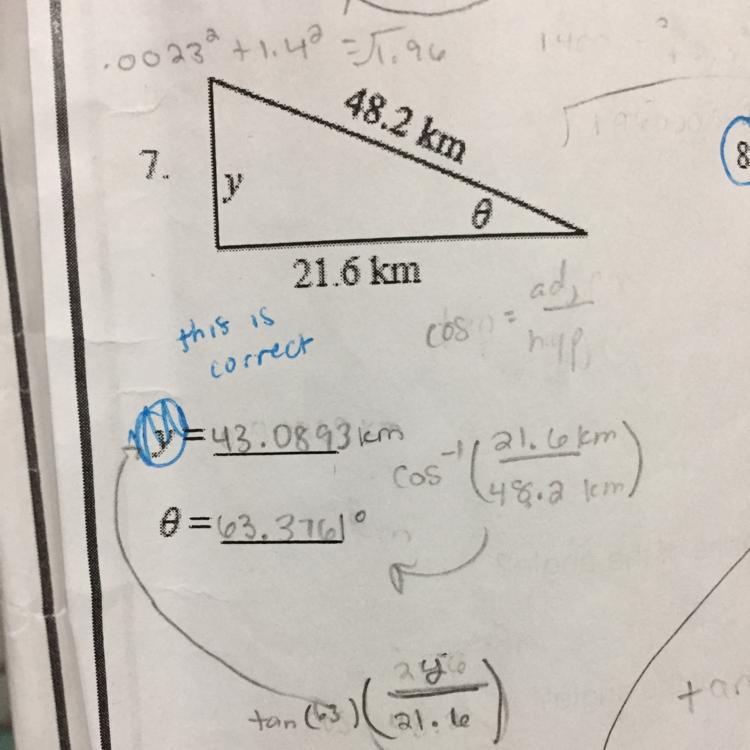 .0023² + 1.4² = √1.96
48.2 km
7.
y
θ
8
21.6 km
this is
correct
cos = adj
hyp
y = 43.0893 km
cos⁻¹ (21.6 km
48.2 km)
θ = 63.3761°
tan(63) (y
21.6)
tan